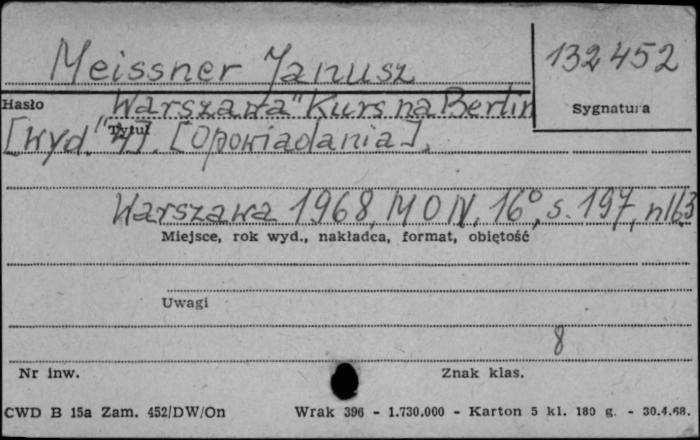 Meissner Janusz
132452
Hasło
Sygnatura
„Warszawa" Kurs na Berlin
Tytuł
[Wyd. 4]. [Opowiadania].
Warszawa 1968, MON, 16°, s. 197, nlb3
Miejsce, rok wyd., nakładca, format, obiętość
Uwagi
8
Nr inw.
Znak klas.
CWD B 15a Zam. 452/DW/On Wrak 396 - 1.730.000 - Karton 5 kl. 180 g. - 30.4.68.